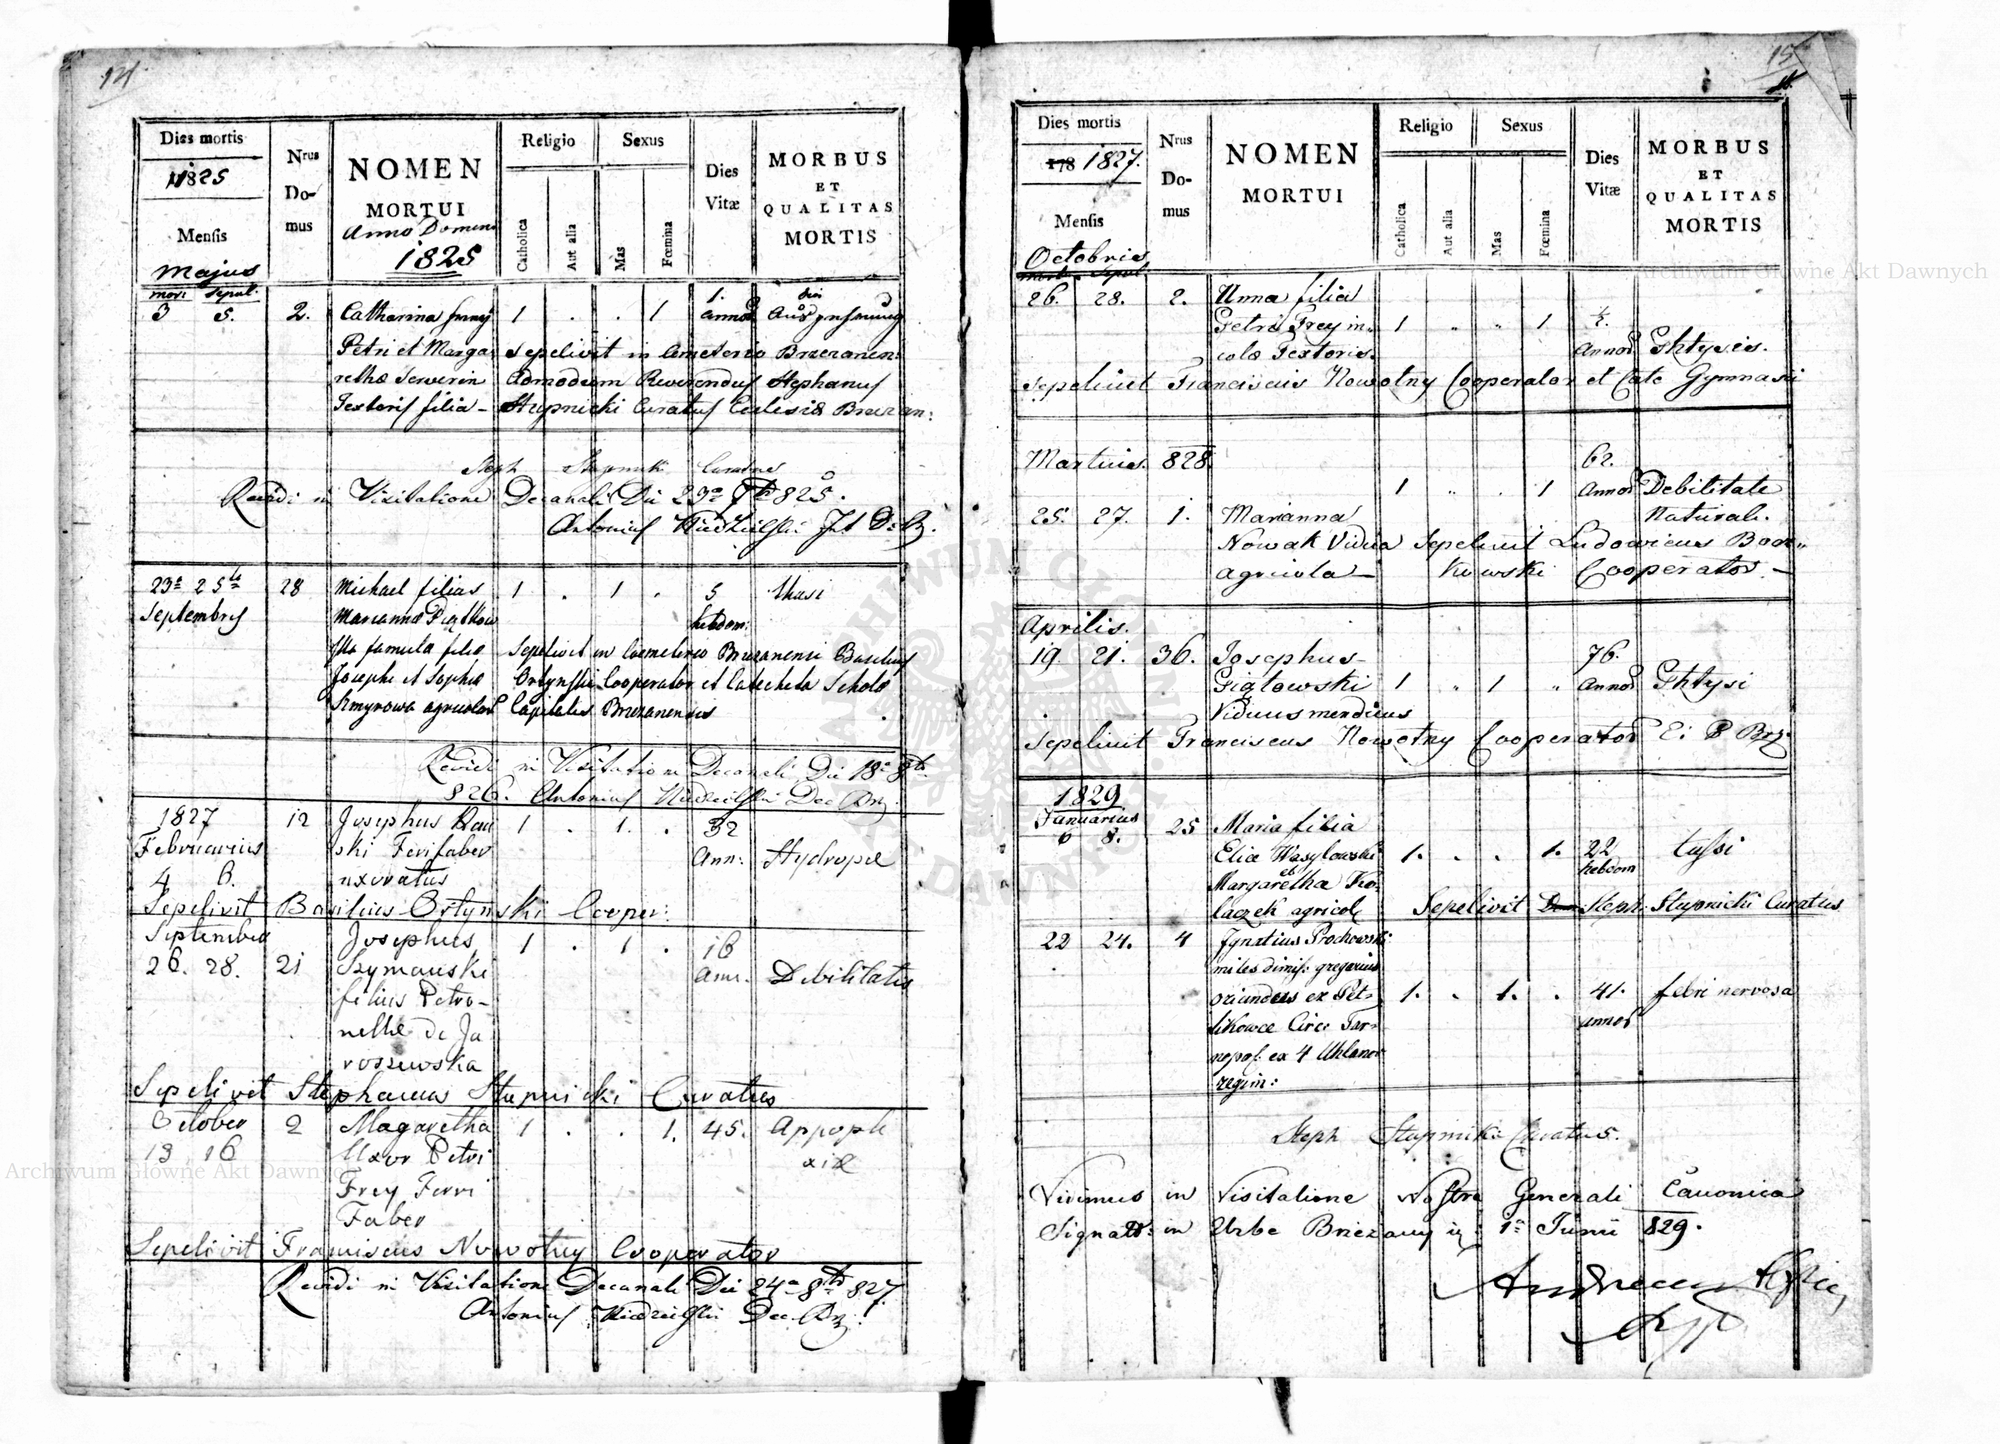 14
Dies mortis
1825
Mensis
Majus
mori sepul.
Nrus Do- mus
NOMEN
MORTUI
Anno Domini
1825
Religio
Catholica
Aut alia
Sexus
Mas
Fœmina
Dies Vitæ
MORBUS
ET
QUALITAS
MORTIS
3 5. 2. Catharina 1 . . 1 1. annor
Petri et Marga sepelivit in Cemeterio Brzezanen:
rethæ Serverin Admodum Reverendus Stephanus
Textoris filia – Stupnicki Curatus Ecclesiæ Brzezan:
Steph Stupnicki Curatus
Revidi in Visitatione Decanali Die 23a 825.
Antonius
23a 25ta 28 Michael filius 1 . 1 . 5
Septembris Marianna hebdom:
famula filia sepelivit in Coemeterio Brzezanensi Basilius
Josephi et Sophia Ortynski Cooperator et Catecheta Scholæ
agricolar Capitalis Brzezanensis
Revidi in Visitatione Decanali Die 18a 8bris
826. Antonius Dec Brz.
1827 12 Josephus 1 . 1. . 32
Februarius ski Ferifaber Ann: Hydropæ
4 6. uxoratus
Sepelivit Basilius Ortynski Cooper:
September Josephus 1 . 1 . 16
26. 28. 21 Szymanski ann. Debilitatis
filius Petro-
nellæ de Ja
roszewska
Sepelivit Stephanus Stupnicki Curatus
October 2 Magaretha 1 . . 1. 45. Appople
13 16 Uxor Petri xiæ
Frey Ferri
Faber
Sepelivit Franciscus Nowotny Cooperator
Revidi in Visitatione Decanali Die 24a 8bris 827
Antonius Dec. Brz.
15
Dies mortis
178 1827.
Mensis
Octobris
mort. sepul.
Nrus Do- mus
NOMEN
MORTUI
Religio
Catholica
Aut alia
Sexus
Mas
Fœmina
Dies Vitæ
MORBUS
ET
QUALITAS
MORTIS
26. 28. 2. Anna filia
Petri Frey in- 1 " " 1 ½.
colæ Textoris. Annor Phtysis.
sepelivit Franciscus Nowotny Cooperator et Cate Gymnasii
Martius. 828. 62.
1 " . 1 Annor Debilitate
25. 27. 1. Marianna Naturali.
Nowak Vidua sepelivit Ludovicus Bor-
agricola – kowski Cooperator –
Aprilis.
19. 21. 36. Josephus 76.
Piątowski 1 " 1 " Annor Phtysi
Viduus mendicus
sepelivit Franciscus Nowotny Cooperator E: B Brz
1829
Januarius
6 8. 25 Maria filia
Eliæ Wasylowski 1. . . 1. 22 tussi
et hebdom
Margaretha Ko-
laczek agricol Sepelivit Steph: Stupnicki Curatus
22 24. 4 Ignatius Prochowski
miles dimiss: gregarius
oriundus ex Pet- 1. . 1. . 41. febri nervosa
likowce Circ: Tar- annor
nopol: ex 4 Uhlanor
regim:
Steph Stupnicki Curatus.
Vidimus in Visitatione Nostra Generali Canonica
Signatt: in Urbe Brzezany 1a Junii 829.
Archiwum Główne Akt Dawnych
Archiwum Główne Akt Dawnych